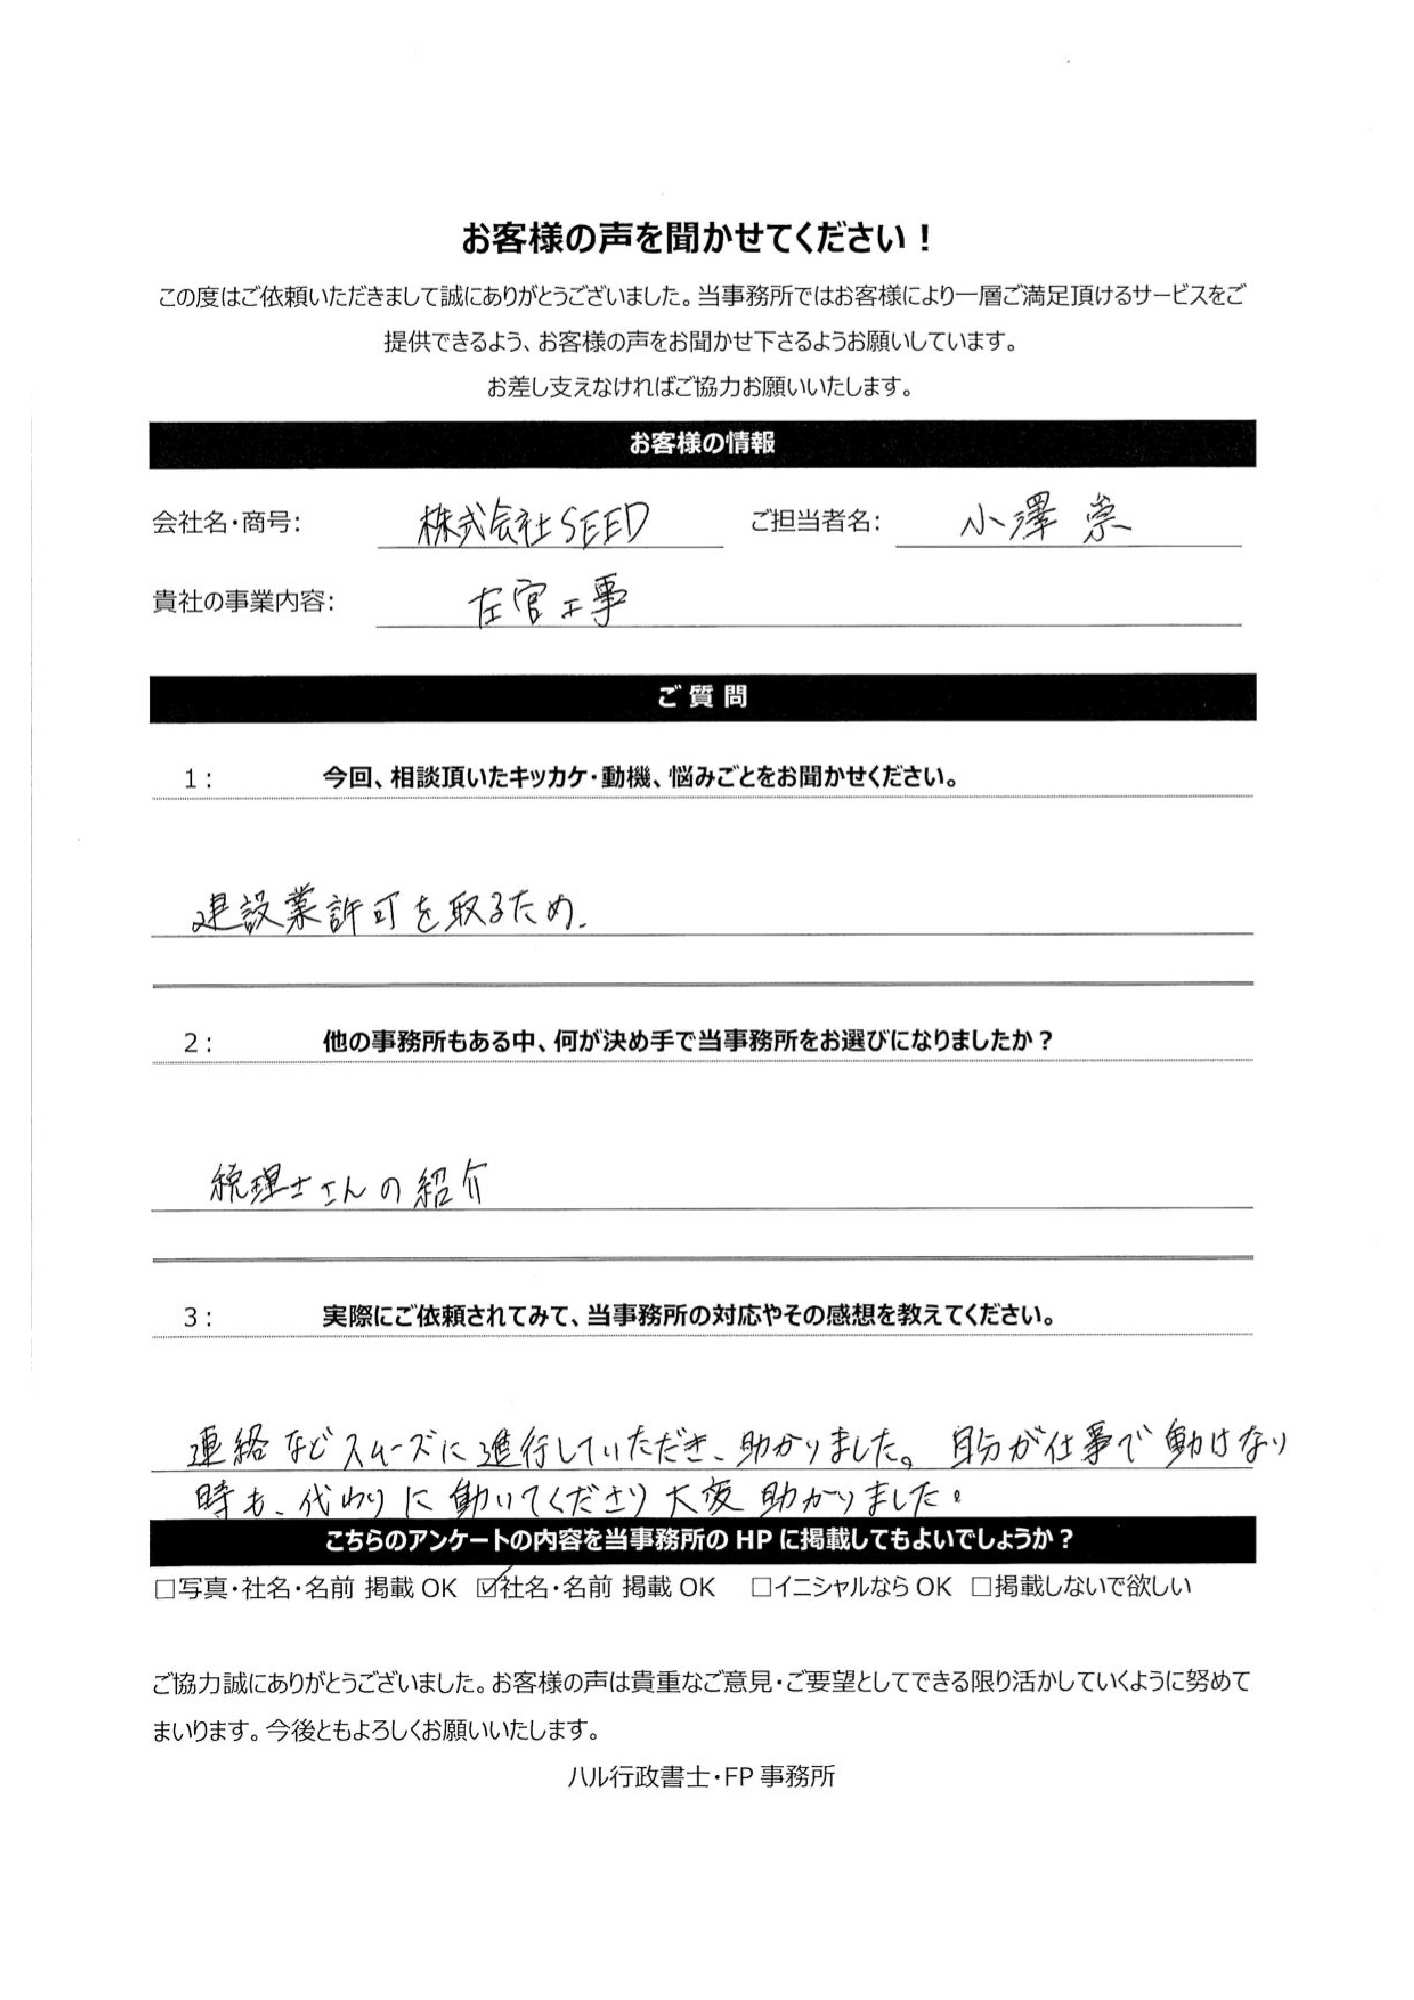 お客様の声を聞かせてください！
この度はご依頼いただきまして誠にありがとうございました。当事務所ではお客様により一層ご満足頂けるサービスをご
提供できるよう、お客様の声をお聞かせ下さるようお願いしています。
お差し支えなければご協力お願いいたします。
お客様の情報
会社名・商号： 株式会社SEED ご担当者名： 小澤 崇
貴社の事業内容： 左官工事
ご 質 問
1： 今回、相談頂いたキッカケ・動機、悩みごとをお聞かせください。
建設業許可を取るため.
2： 他の事務所もある中、何が決め手で当事務所をお選びになりましたか？
税理士さんの紹介
3： 実際にご依頼されてみて、当事務所の対応やその感想を教えてください。
連絡などスムーズに進行していただき、助かりました。自分が仕事で動けない
時も、代わりに動いてくださり大変助かりました。
こちらのアンケートの内容を当事務所の HP に掲載してもよいでしょうか？
□写真・社名・名前 掲載 OK ☑社名・名前 掲載 OK □イニシャルなら OK □掲載しないで欲しい
ご協力誠にありがとうございました。お客様の声は貴重なご意見・ご要望としてできる限り活かしていくように努めて
まいります。今後ともよろしくお願いいたします。
ハル行政書士・FP 事務所